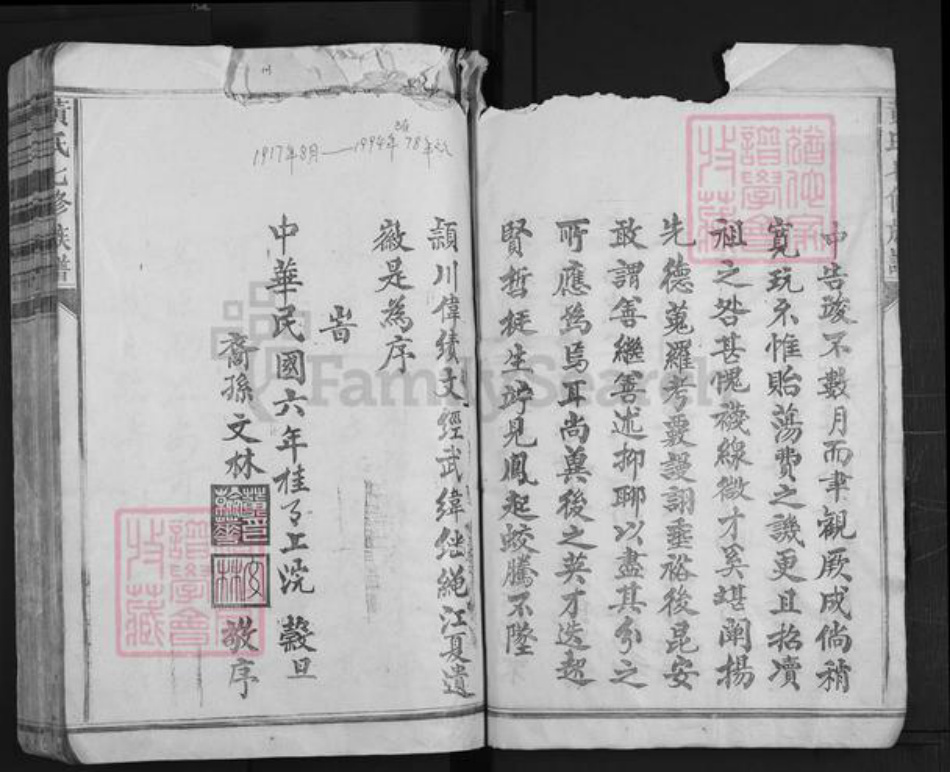 中告竣不數月而聿觀厥成倘稍
寬玩不惟貽蕩費之譏更且招凟
祖之咎甚愧襪線微才奚堪闡揚
先德蒐羅考覈謾詡垂裕後昆安
敢謂善繼善述抑聊以盡其分之
所應爲焉耳尚冀後之英才迭起
賢哲挺生竚見鳳起蛟騰不墜
頴川偉績文經武緯繼繩江夏遺
徽是為序
旹
中華民國六年桂月上浣 穀旦
裔孫文林 敬序
1917年8月—1994年 78年
黃氏七修族譜
譜學會
收藏
FamilySearch